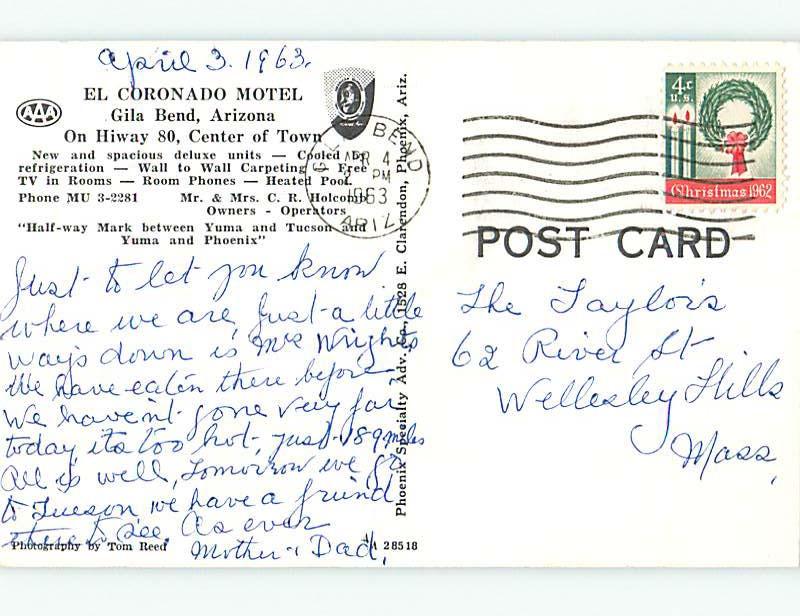 April 3. 1963.
AAA
EL CORONADO MOTEL
Gila Bend, Arizona
On Hiway 80, Center of Town
New and spacious deluxe units — Cooled by
refrigeration — Wall to Wall Carpeting — Free
TV in Rooms — Room Phones — Heated Pool.
Phone MU 3-2281 Mr. & Mrs. C. R. Holcomb
Owners - Operators
"Half-way Mark between Yuma and Tucson and
Yuma and Phoenix"
Just to let you know
where we are, Just a little
ways down is Mrs Wright's
We have eaten there before
We haven't gone very far
today, its too hot, just 189 miles
All is well, Tomorrow we go
to Tucson, we have a friend
there to see, As ever
Mother & Dad,
Photography by Tom Reed
28518
Phoenix Specialty Adv. Co., 1528 E. Clarendon, Phoenix, Ariz.
GILA BEND
APR 4
PM
1963
ARIZ
4¢
U.S.
Christmas 1962
POST CARD
The Taylors
62 River St
Wellesley Hills
Mass,